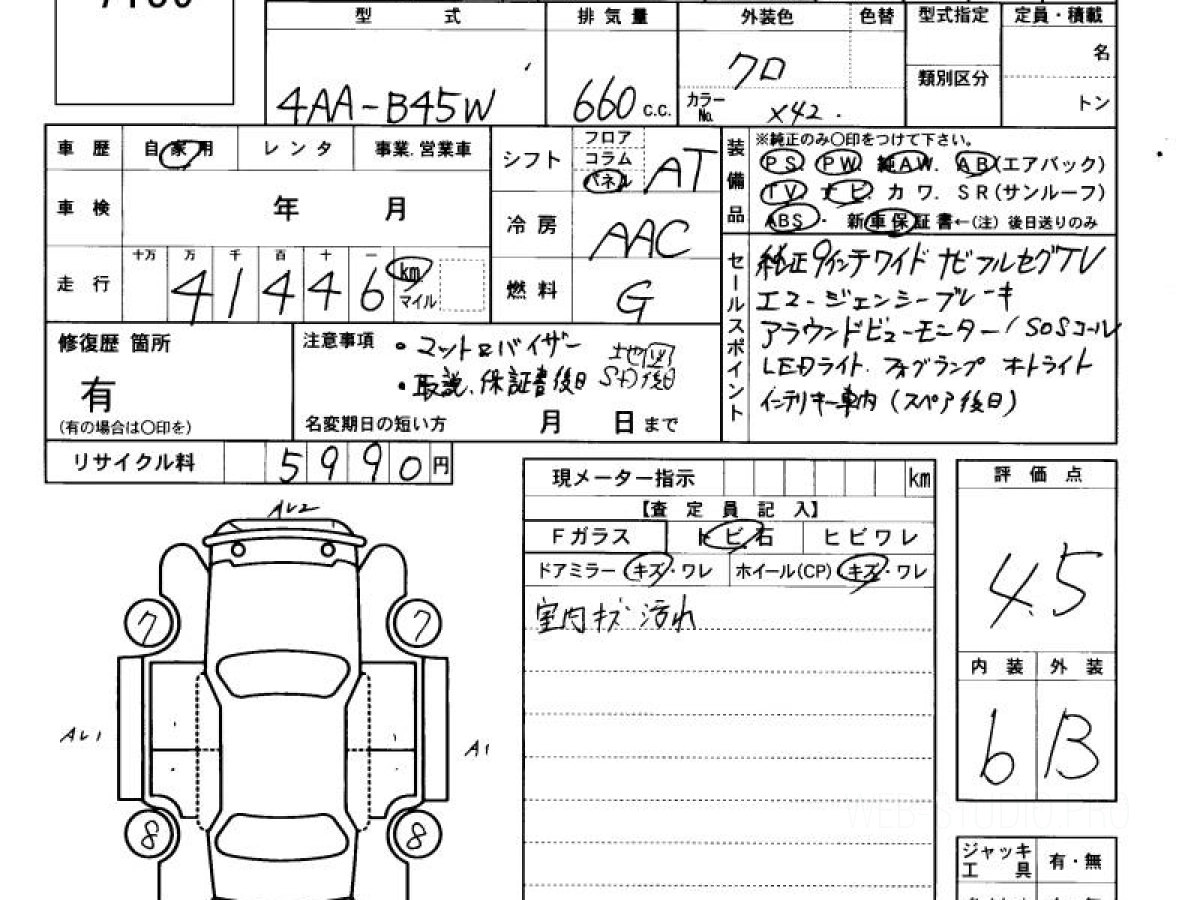 型 式 排気量 外装色 色替 型式指定 定員・積載
4AA-B45W 660 c.c. クロ 名
カラーNo. X42. 類別区分 トン
車歴 自家用 レンタ 事業.営業車
シフト フロア コラム パネル AT
車検 年 月
冷房 AAC
走行 十万 万 千 百 十 一
41446 km マイル
燃料 G
装備品 ※純正のみ〇印をつけて下さい。
PS. PW. 純AW. AB(エアバック)
TV ナビ カワ. SR(サンルーフ)
ABS・ 新車保証書←(注) 後日送りのみ
セールスポイント
純正9インチワイドナビフルセグTV
エマージェンシーブレーキ
アラウンドビューモニター/SOSコール
LEDライト. フォグランプ オートライト
インテリキー車内(スペア後日)
修復歴 箇所
有
(有の場合は〇印を)
注意事項 ・マットαバイザー
・取説.保証書後日
地図
SD後日
名変期日の短い方 月 日まで
リサイクル料 5990円
現メーター指示 km
【査定員記入】
Fガラス トビ石 ヒビワレ
ドアミラー キズ・ワレ ホイール(CP) キズ・ワレ
室内キズ汚れ
評価点
4.5
内装 外装
b B
ジャッキ 有・無
工具
AL2
7 7
AL1 A1
8 8
WEB-STUDIO.PRO